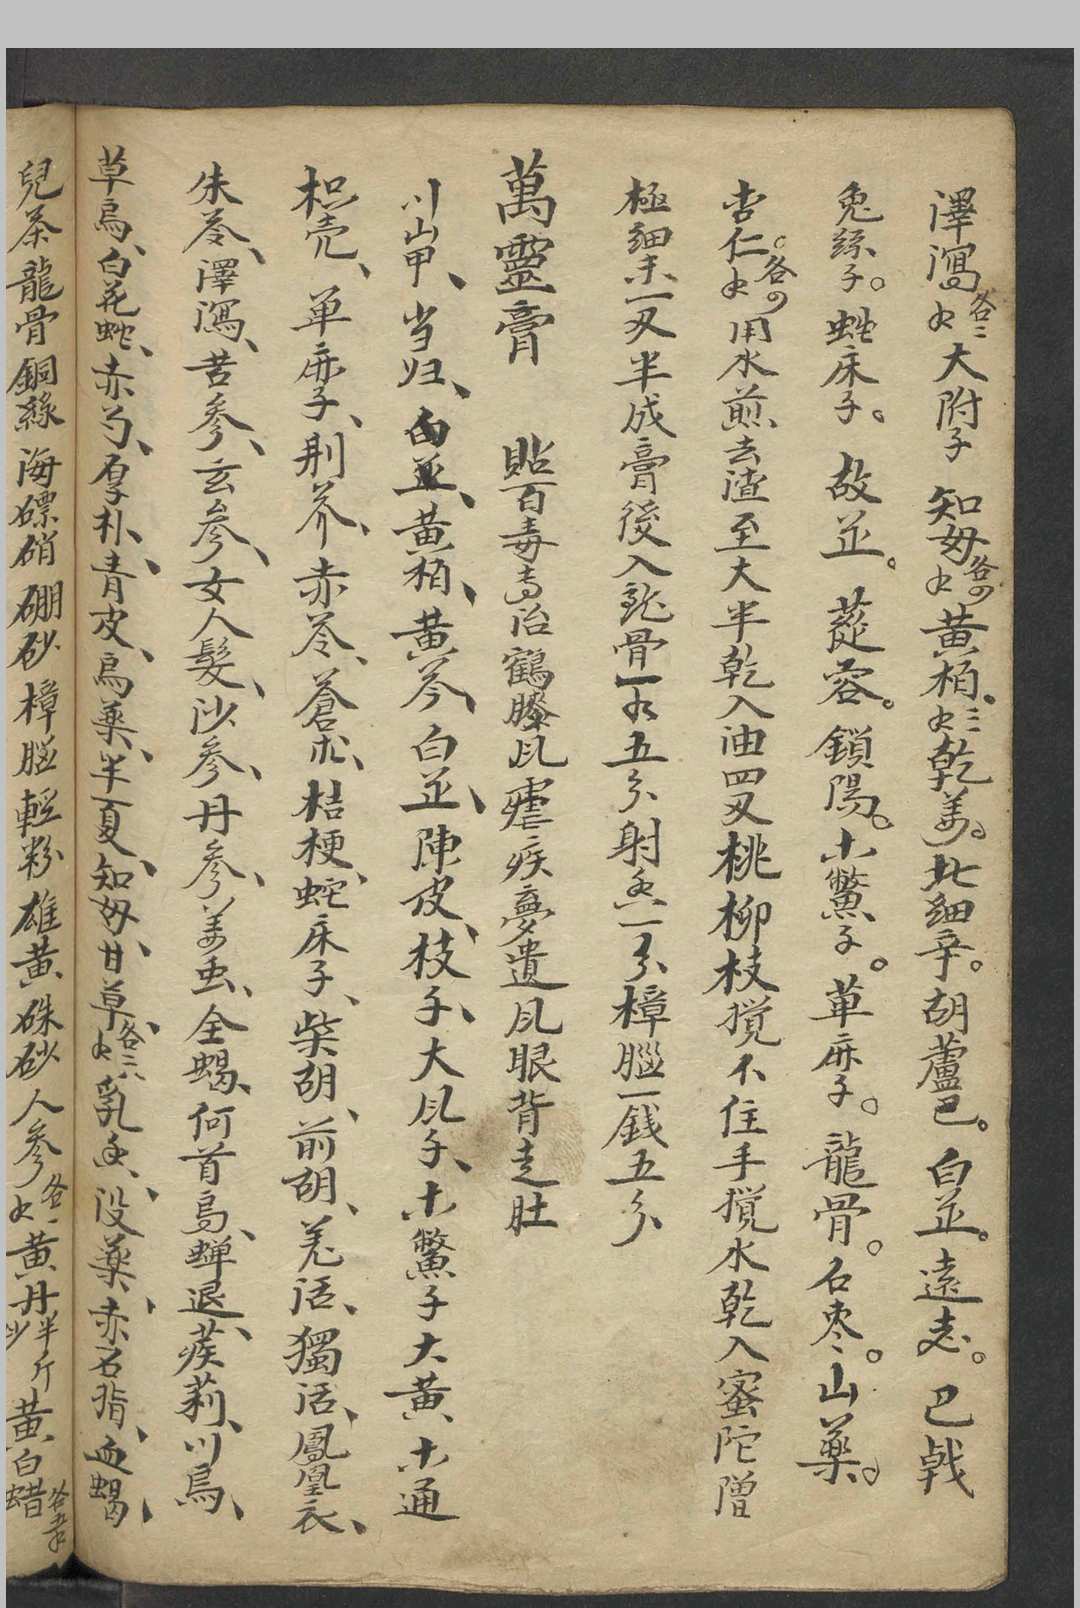 澤瀉各二大附子知母各黃栢三乾姜北細辛胡蘆巴白芷遠志巴戟
兔絲子蛇床子故芷蓯容鎖陽木鱉子草麻子龍骨石枣山藥
杏仁各用水煎去渣至大半乾入油四双桃柳枝搅不住手搅水乾入蜜陀僧
極細末一双半成膏後入龍骨一五分射香一分樟腦一錢五分
萬靈膏 貼百毒高治鶴膝風瘧疾夢遺風眼背走肚
川山甲、当归、白芷、黄栢、黄芩、白芷、陳皮、枝子、大风子、木鱉子大黄木通
枳壳、草麻子、荆芥、赤苓、蒼朮、桔梗、蛇床子、柴胡、前胡、羌活、獨活、鳳凰衣、
朱苓、澤瀉、苦參、玄參、女人髮、沙參、丹參、姜虫、全蝎、何首烏、蝉退、蒺莉、川烏、
草烏、白花蛇、赤芍、厚朴、青皮、烏藥、半夏、知母、甘草各二乳香、没藥、赤石指、血蝎、
兒茶龍骨銅綠海磦硝硼砂樟腦輕粉雄黄硃砂人參各一黄丹半斤黄白蜡各